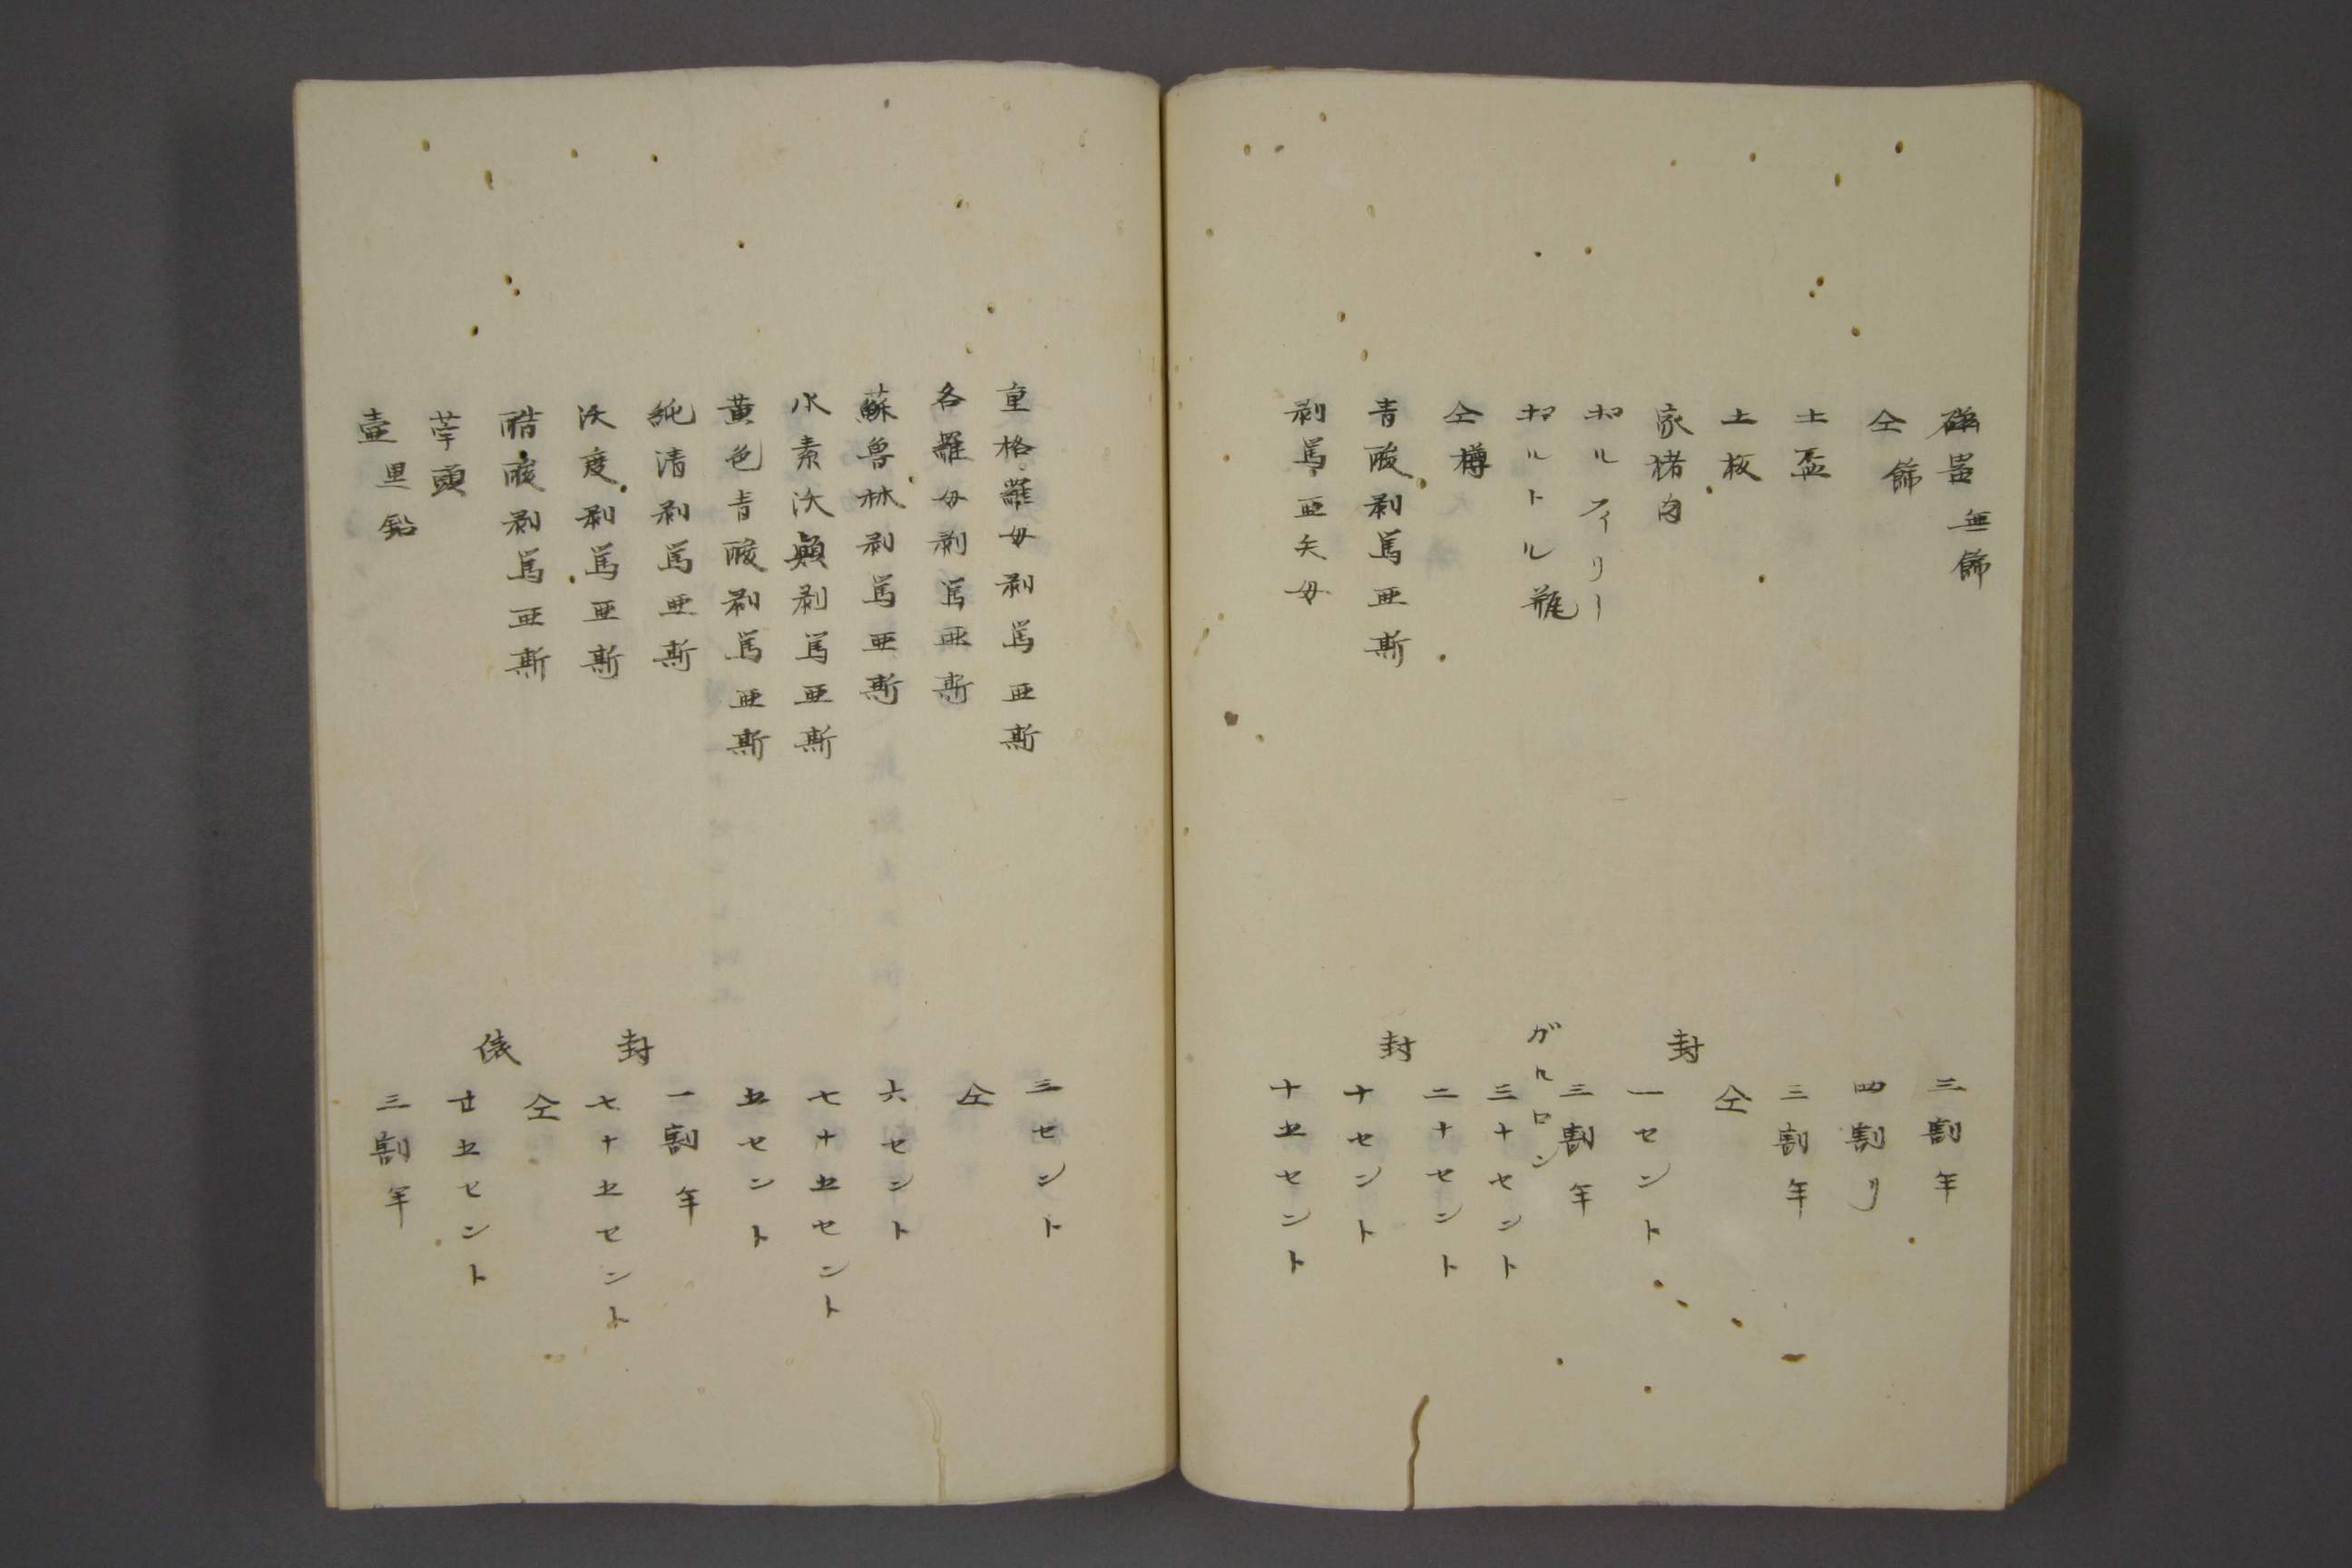 磁器 無飾 三割半
仝 飾 四割リ
土盃 三割半
土板 仝
家猪肉 封 一セント
ポルティリー 三割半
ポルトル瓶 ガルロン 三十セント
仝樽 二十セント
青酸剥篤亜斯 封 十セント
剥篤亜矢母 十五セント
重格羅母剥篤亜斯 三セント
各羅母剥篤亜斯 仝
蘇魯林剥篤亜斯 六セント
水素沃顛剥篤亜斯 七十五セント
黄色青酸剥篤亜斯 五セント
純清剥篤亜斯 一割半
沃度剥篤亜斯 封 七十五セント
醋酸剥篤亜斯 仝
芋頭 俵 廿五セント
壷 黒鉛 三割半